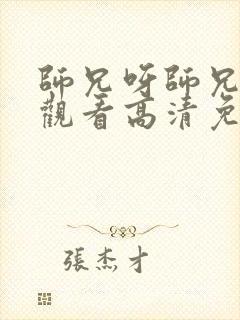 師兄呀師兄
觀看高清免
張杰才